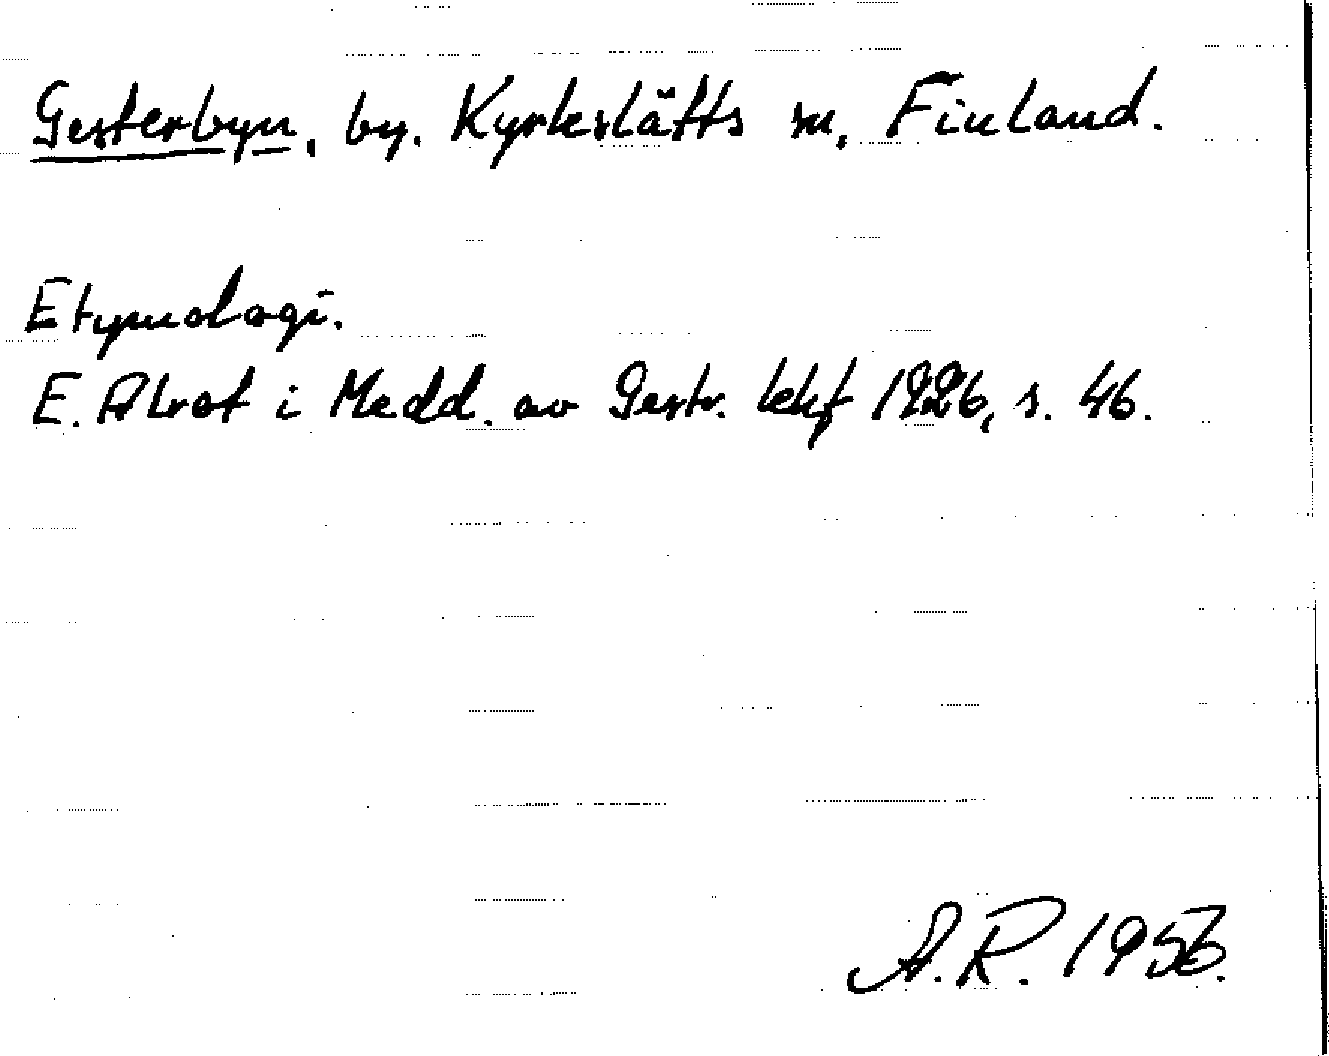 Gesterbyn, by. Kyrkslätts sn, Finland.
Etymologi.
E. Alrot i Medd. av Gestr. kkf 1926, s. 46.
A.R. 1956.